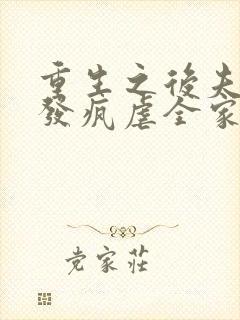 重生之後夫
發瘋虐全家
党家莊